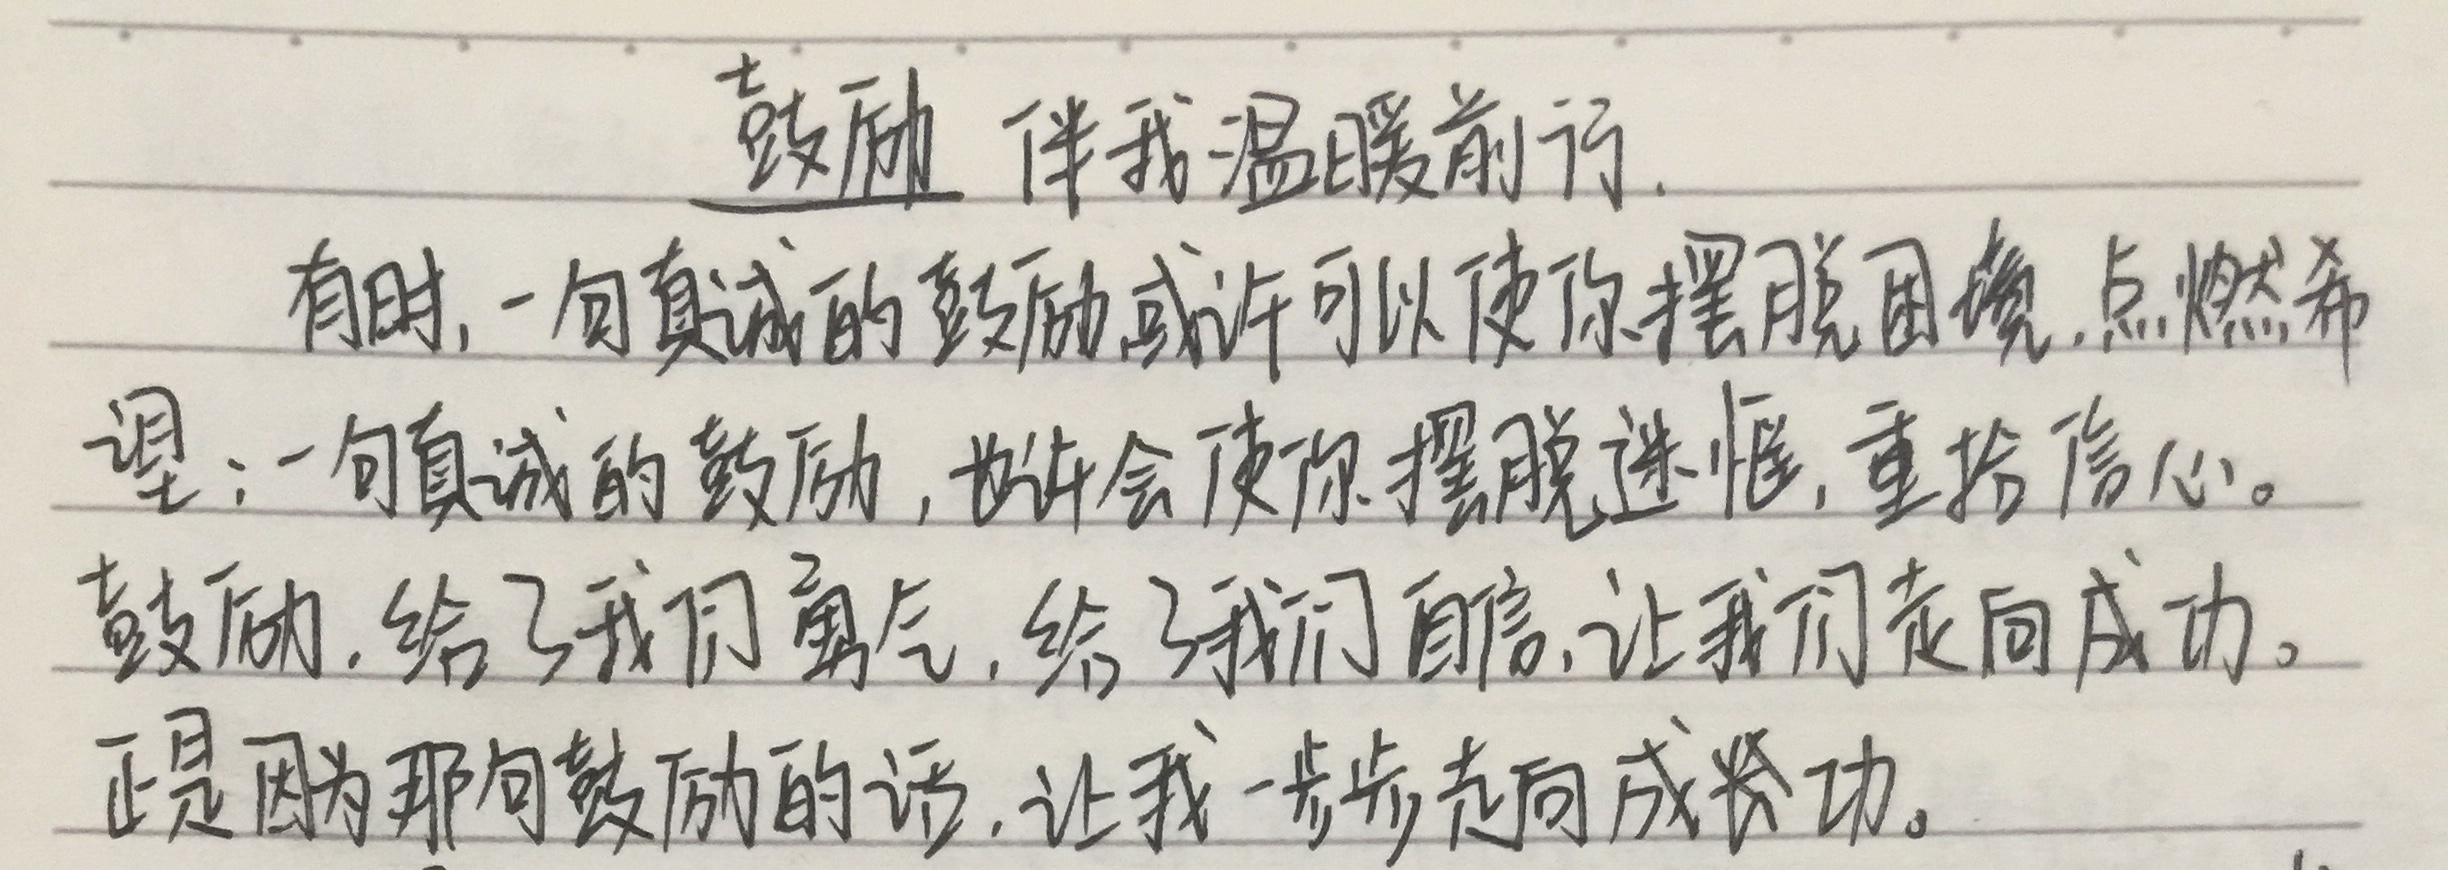 鼓励 伴我温暖前行.
有时,一句真诚的鼓励或许可以使你摆脱困境,点燃希
望;一句真诚的鼓励,也许会使你摆脱迷惘,重拾信心。
鼓励,给了我们勇气,给了我们自信,让我们走向成功。
正是因为那句鼓励的话,让我一步步走向成功。